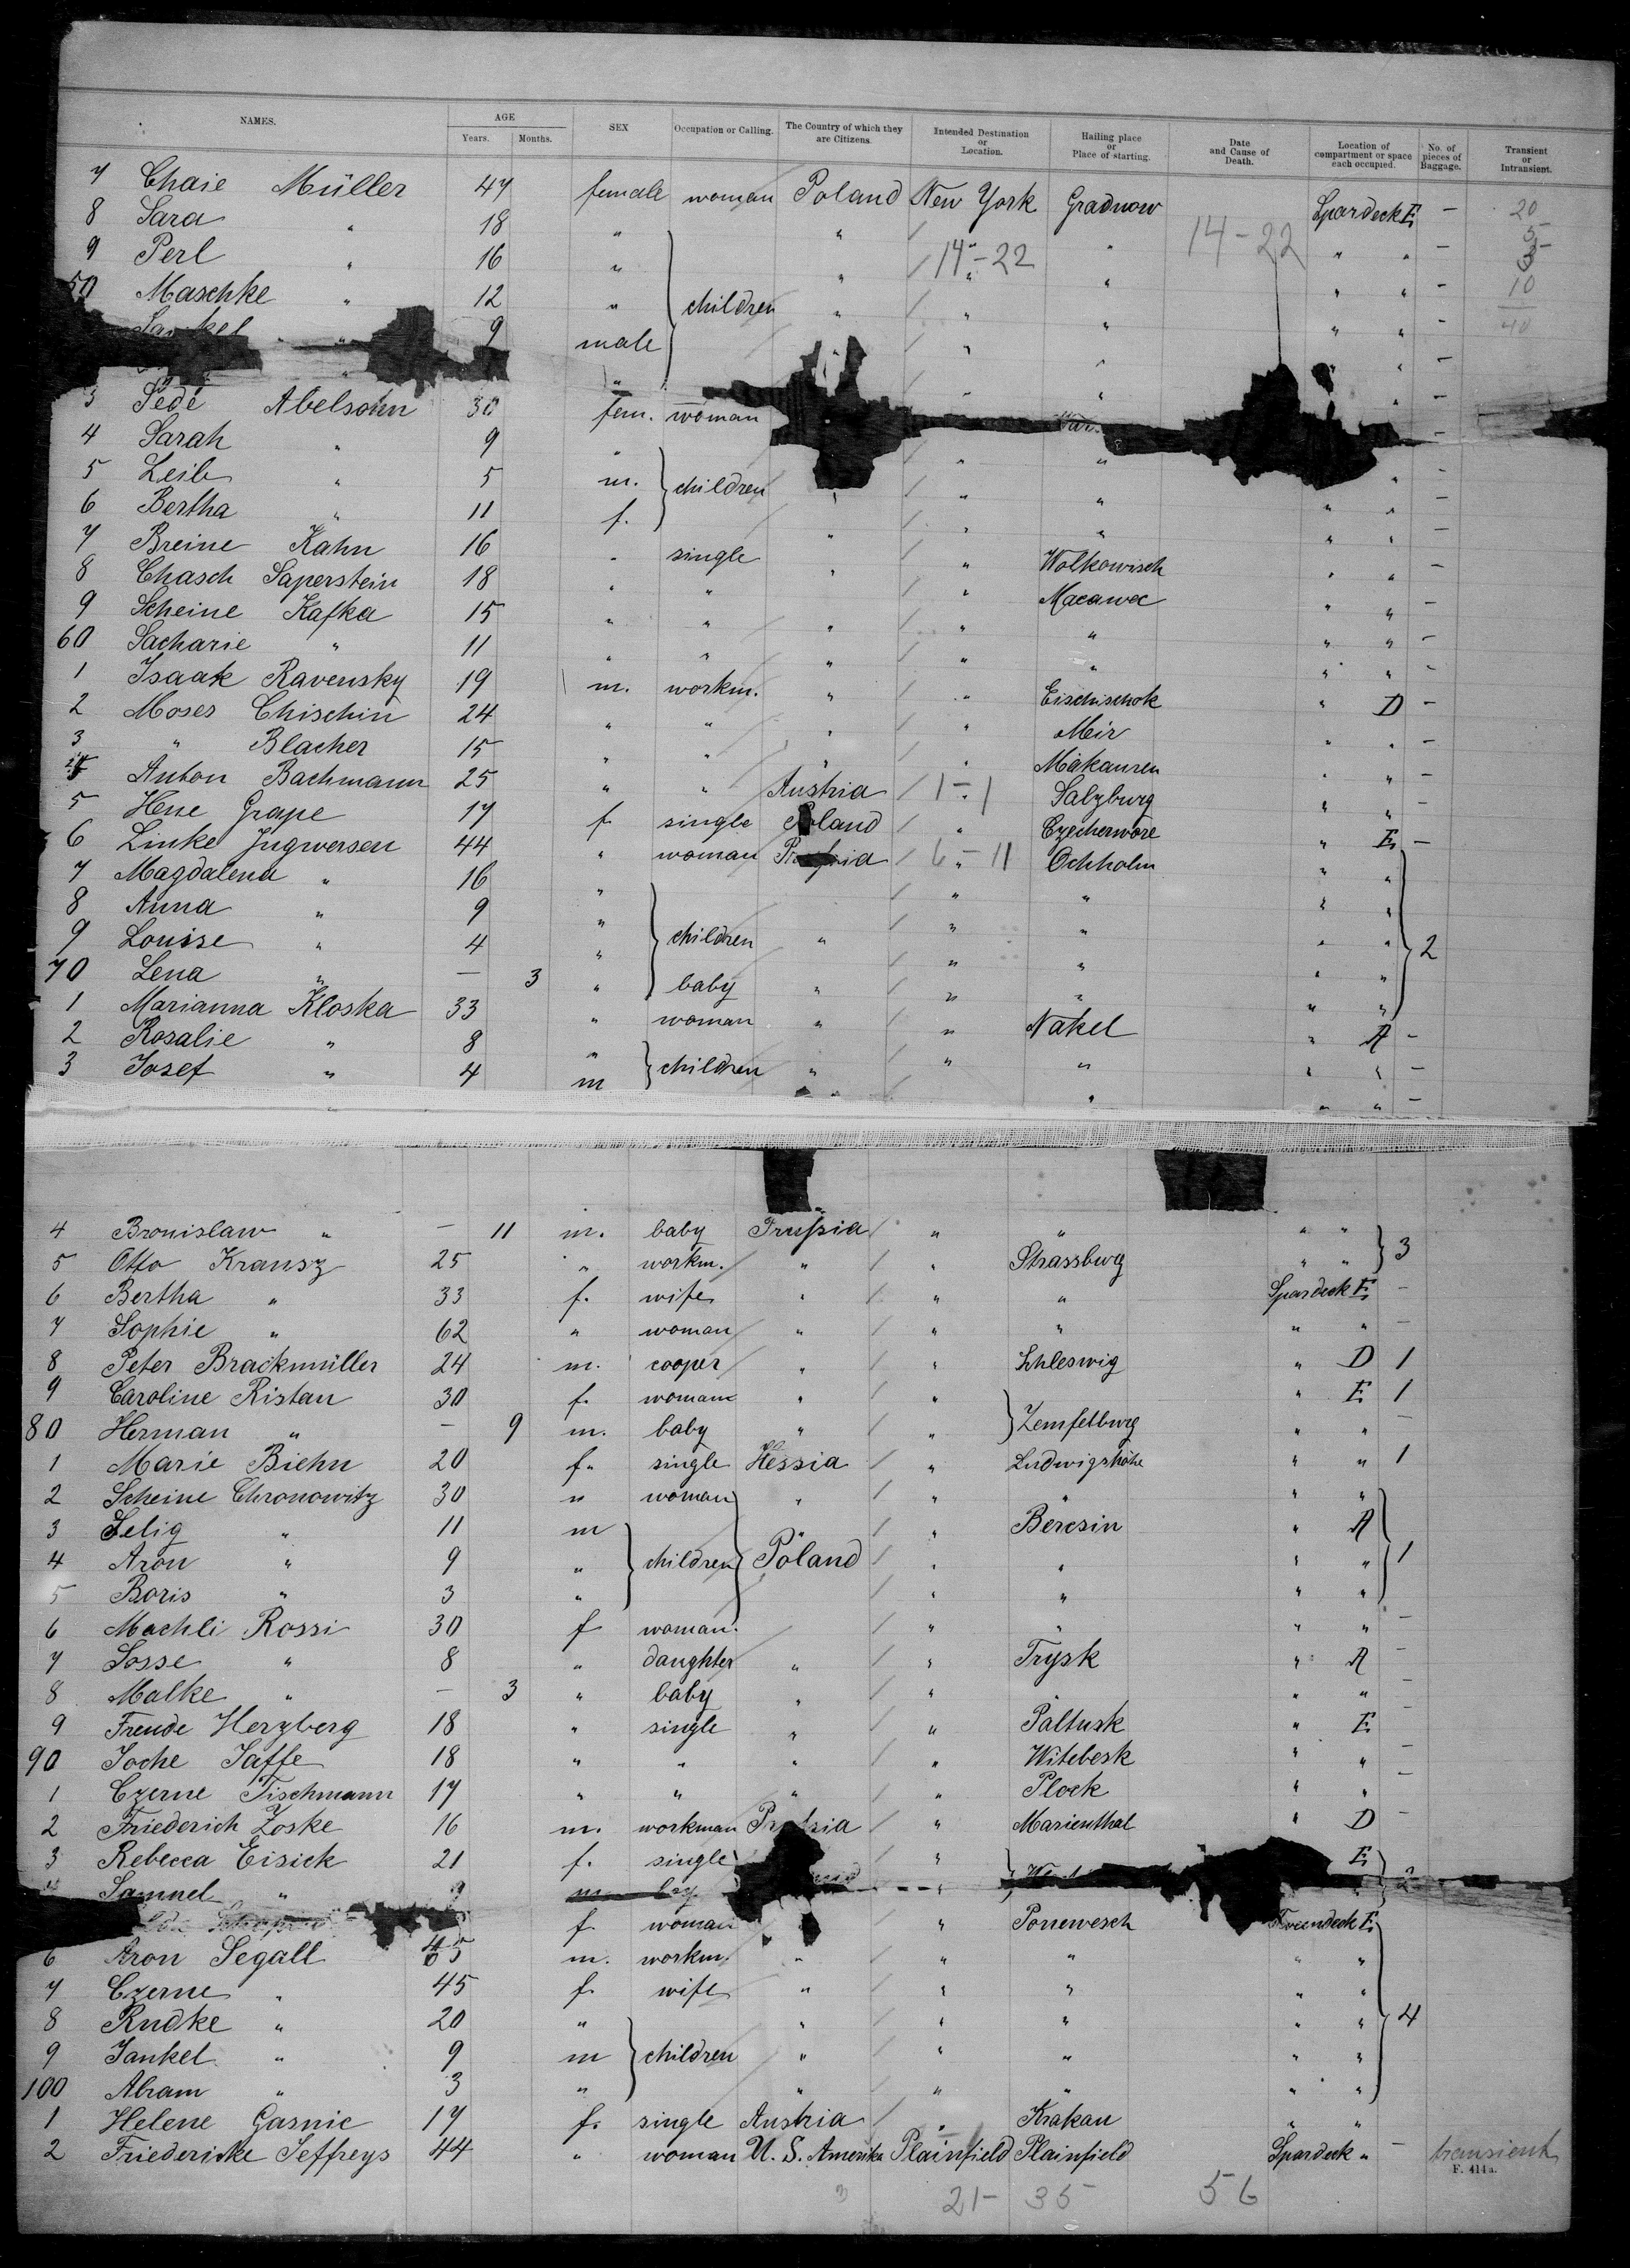 NAMES. AGE Years. Months. SEX Occupation or Calling. The Country of which they are Citizens. Intended Destination or Location. Hailing place or Place of starting. Date and Cause of Death. Location of compartment or space each occupied. No. of pieces of Baggage. Transient or Intransient.
7 Chaie Müller 47 female woman Poland / New York Gradnow Spardeck E - 20
8 Sara " 18 " " / " " 14-22 " " - 5
9 Perl " 16 " " / 14-22 " " " - 3
50 Maschke " 12 " children " / " " " " - 10
9 male / " " " " - 40
3 Abelsohn 30 fem. woman
4 Sarah " 9 " / " " -
5 Leib " 5 m. children / " " " -
6 Bertha " 11 f. / " " " " -
7 Breine Kahn 16 " single " / " Wolkowisch " " -
8 Chasch Saperstein 18 " " " / " Macawoc " " -
9 Scheine Kafka 15 " " " / " " " " -
60 Sacharie " 11 " " " / " " " " -
1 Isaak Ravensky 19 m. workm. " / " Eischischok " D -
2 Moses Chischin 24 " " " / " Meir " " -
3 " Blacher 15 " " " / " Makauren " " -
4 Anton Bachmann 25 " " Austria / 1-1 Salzburg " " -
5 Hene Grape 17 f. single Poland / " Czecherwore " E -
6 Linke Ingwersen 44 " woman / 6-11 Ochholm " "
7 Magdalena " 16 " / " " " "
8 Anna " 9 " children / " " " "
9 Louise " 4 " " / " " " " 2
70 Lena " - 3 " baby " / " " " "
1 Marianna Kloska 33 " woman " / " Nakel " A -
2 Rosalie " 8 " children " / " " " " -
3 Josef " 4 m " / " " " -
4 Bronislaw " - 11 m. baby Prussia / " " " " 3
5 Otto Kransz 25 " workm. " / " Strassburg " "
6 Bertha " 33 f. wife " / " " Spardeck E -
7 Sophie " 62 " woman " / " " " " -
8 Peter Brackmüller 24 m. cooper " / " Schleswig " D 1
9 Caroline Ristau 30 f. woman " / " Zempelburg " E 1
80 Herman " - 9 m. baby " / " " " -
1 Marie Biehn 20 f. single Hessia / " Ludwigshöhe " " 1
2 Scheine Chronowitz 30 " woman " / " " " "
3 Selig " 11 m children " / " Beresin " A
4 Aron " 9 " Poland / " " " " 1
5 Boris " 3 " / " " " "
6 Machli Rossi 30 f woman. / " " " " -
7 Sosse " 8 " daughter " / " Trysk " A -
8 Malke " - 3 " baby " / " " " " -
9 Freude Herzberg 18 " single " / " Paltusk " E -
90 Soche Jaffe 18 " " " / " Witebesk " " -
1 Czerne Tischmann 17 " " " / " Plock " " -
2 Friederich Zoske 16 m. workman / " Marienthal " D -
3 Rebecca Eisick 21 f. single / " E 2
Samuel " 9 m. "
f. woman " Ponewesch E
6 Aron Segall m. workm. " / " " " "
7 Czerne " 45 f. wife " / " " " "
8 Rudke " 20 " children " / " " " " 4
9 Jankel " 9 m " / " " " "
100 Abram " 3 " " / " " " "
1 Helene Gasnic 17 f. single Austria / " Krakau " "
2 Friederike Jeffreys 44 " woman U. S. Amerika Plainfield Plainfield Spardeck " - transient
F. 411a.
3 21- 35 56